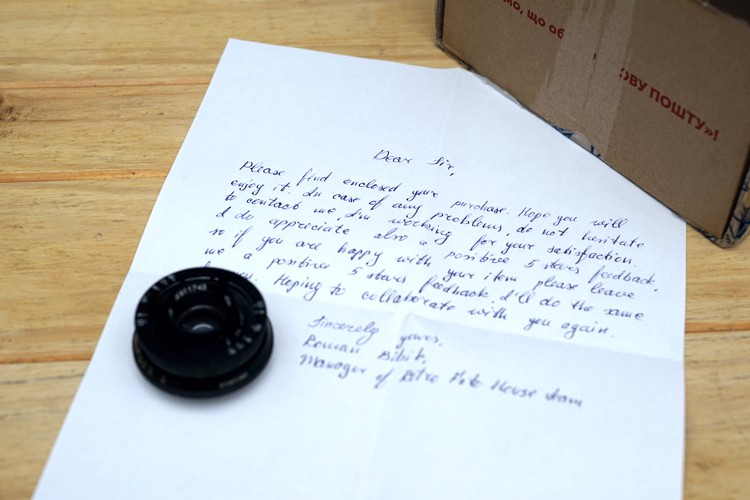 мо, що об
ОВУ ПОШТУ»!
Dear Sir,
Please find enclosed your purchase. Hope you will
enjoy it. In case of any problems, do not hesitate
to contact me. I'm working for your satisfaction.
I do appreciate also a positive 5 stars feedback,
so if you are happy with your item please leave
me a positive 5 stars feedback. I'll do the same
Hoping to collaborate with you again.
Sincerely yours,
Roman Bibik,
Manager of Retro Foto House team